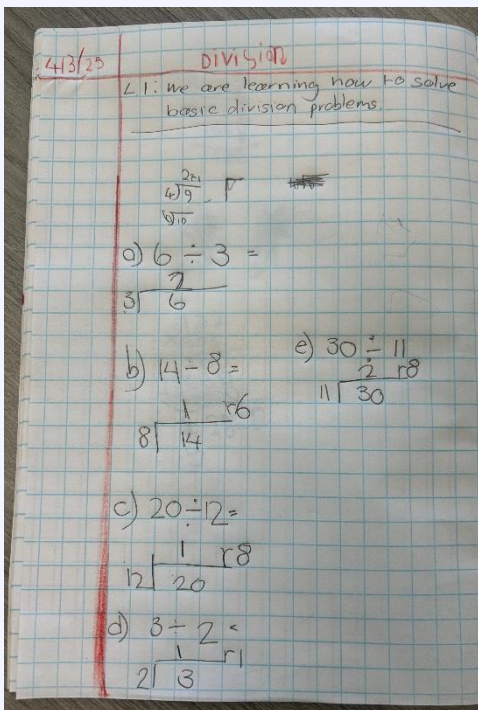 4/3/25
Division
L1: we are learning how to solve
basic division problems.
2r1
4)9
6)10
a) 6 ÷ 3 =
2
3) 6
b) 14 ÷ 8 =
1 r6
8) 14
c) 20 ÷ 12 =
1 r8
12) 20
d) 3 ÷ 2 =
1 r1
2) 3
e) 30 ÷ 11
2 r8
11) 30